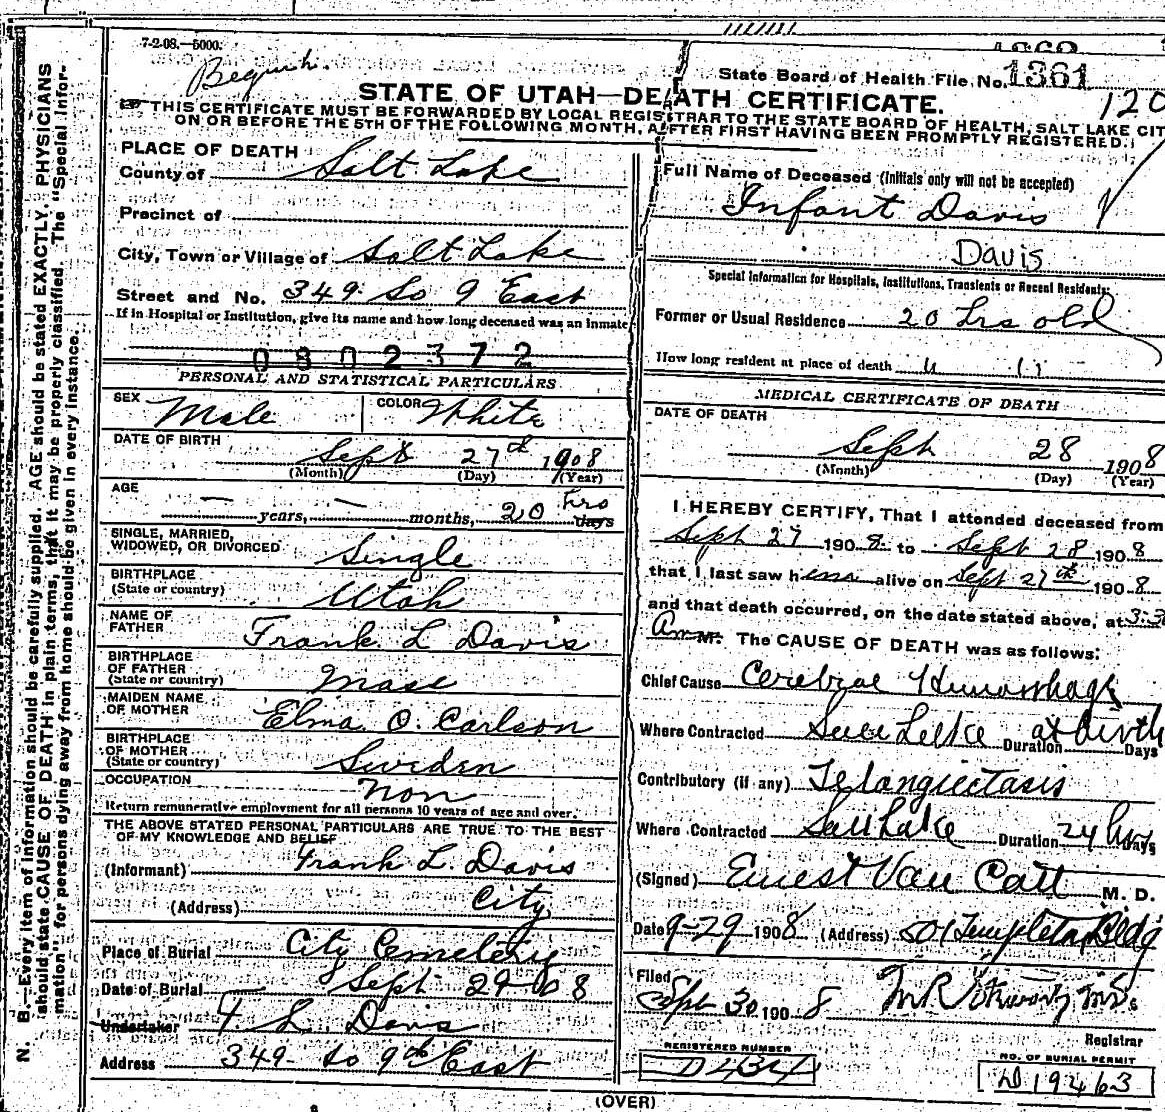 7-2-08.—5000.
State Board of Health File No. 1361
120
STATE OF UTAH—DEATH CERTIFICATE.
THIS CERTIFICATE MUST BE FORWARDED BY LOCAL REGISTRAR TO THE STATE BOARD OF HEALTH, SALT LAKE CIT
ON OR BEFORE THE 5TH OF THE FOLLOWING MONTH, AFTER FIRST HAVING BEEN PROMPTLY REGISTERED.
N. B.—Every item of information should be carefully supplied. AGE should be stated EXACTLY. PHYSICIANS
should state CAUSE OF DEATH in plain terms, that it may be properly classified. The "Special Infor-
mation" for persons dying away from home should be given in every instance.
PLACE OF DEATH
County of Salt Lake
Precinct of
City, Town or Village of Salt Lake
Street and No. 349 So 9 East
If in Hospital or Institution, give its name and how long deceased was an inmate
0802372
PERSONAL AND STATISTICAL PARTICULARS
SEX Male COLOR White
DATE OF BIRTH
Sept 27th 1908
(Month) (Day) (Year)
AGE
— years, — months, 20 hrs days
SINGLE, MARRIED,
WIDOWED, OR DIVORCED Single
BIRTHPLACE
(State or country) Utah
NAME OF
FATHER Frank L Davis
BIRTHPLACE
OF FATHER
(State or country) Mass
MAIDEN NAME
OF MOTHER Elma O. Carlson
BIRTHPLACE
OF MOTHER
(State or country) Sweden
OCCUPATION Non
Return remunerative employment for all persons 10 years of age and over.
THE ABOVE STATED PERSONAL PARTICULARS ARE TRUE TO THE BEST
OF MY KNOWLEDGE AND BELIEF
(Informant) Frank L. Davis
(Address) City
Place of Burial City Cemetery
Date of Burial Sept 29 08
Undertaker F L Davis
Address 349 So 9th East
Full Name of Deceased (Initials only will not be accepted)
Infant Davis
Davis
Special Information for Hospitals, Institutions, Transients or Recent Residents:
Former or Usual Residence 20 hrs old
How long resident at place of death " "
MEDICAL CERTIFICATE OF DEATH
DATE OF DEATH
Sept 28 1908
(Month) (Day) (Year)
I HEREBY CERTIFY, That I attended deceased from
Sept 27 1908 to Sept 28 1908
that I last saw him alive on Sept 27th 1908
and that death occurred, on the date stated above, at 3:3
Am M. The CAUSE OF DEATH was as follows:
Chief Cause Cerebral Hemorrhage
Where Contracted Salt Lake Duration at birth Days
Contributory (if any) Telangiectasis
Where Contracted Salt Lake Duration 24 hrs Days
(Signed) Ernest Van Cott M. D.
Date 9-29 1908 (Address) 501 Templeton Bldg
Filed
Sept 30 1908
Registrar
REGISTERED NUMBER
D434
NO. OF BURIAL PERMIT
D19463
(OVER)